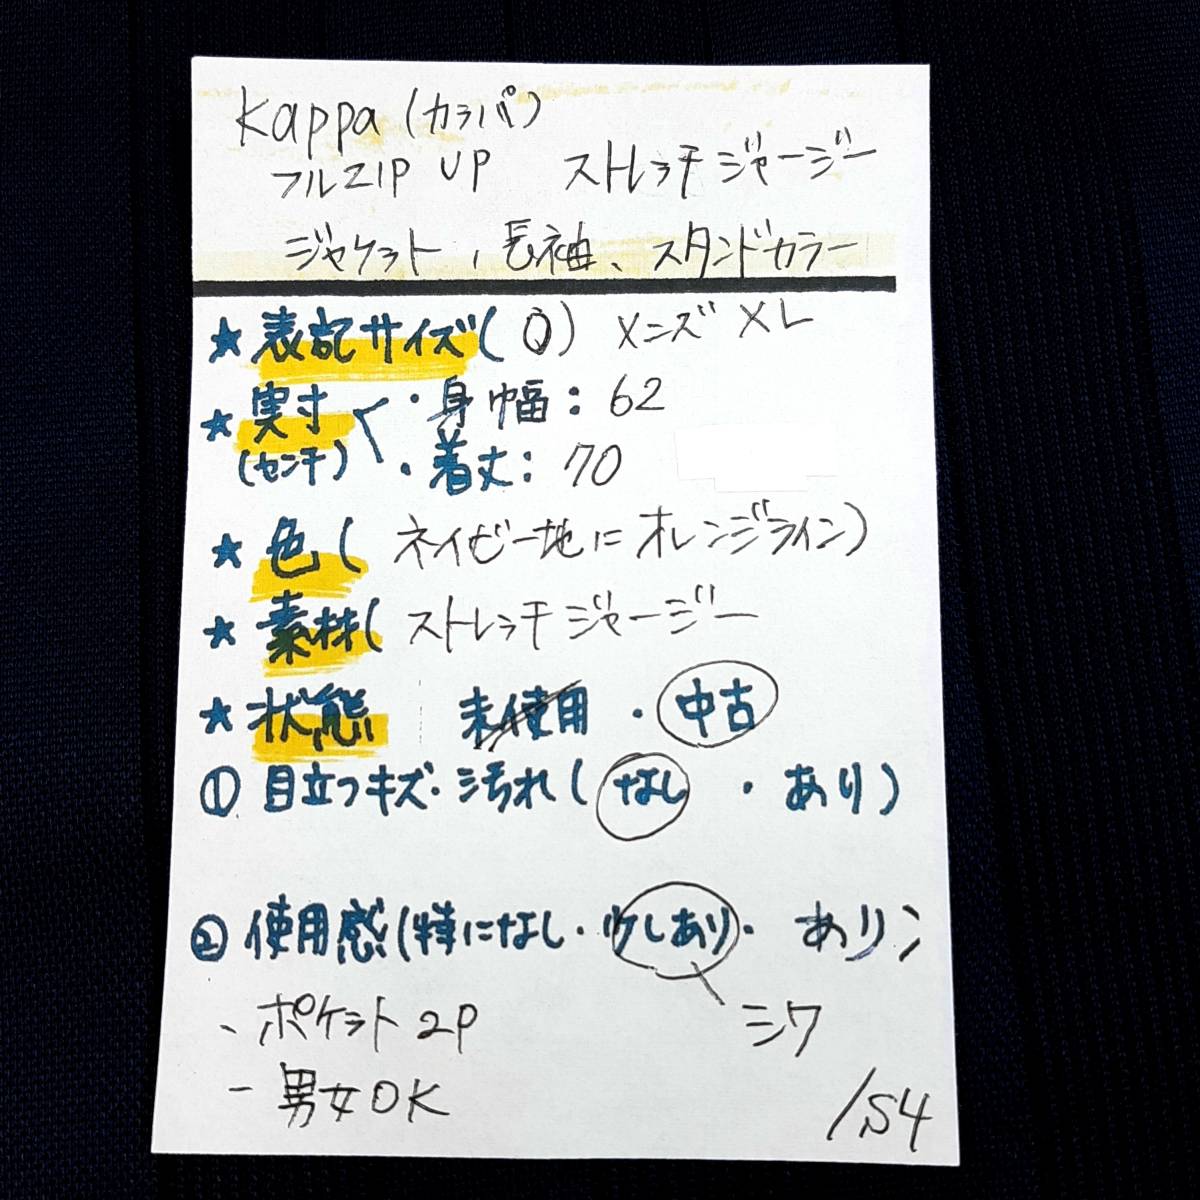 Kappa (カッパ)
フルZIP UP ストレッチジャージー
ジャケット、長袖、スタンドカラー
★表記サイズ(O) メンズ XL
★実寸 ・身幅:62
(センチ) ・着丈:70
★色( ネイビー地にオレンジライン)
★素材( ストレッチジャージー
★状態 未使用・中古
①目立つキズ・汚れ(なし・あり)
②使用感(特になし・少しあり・あり)
、ポケット2P シワ
- 男女OK
/S4